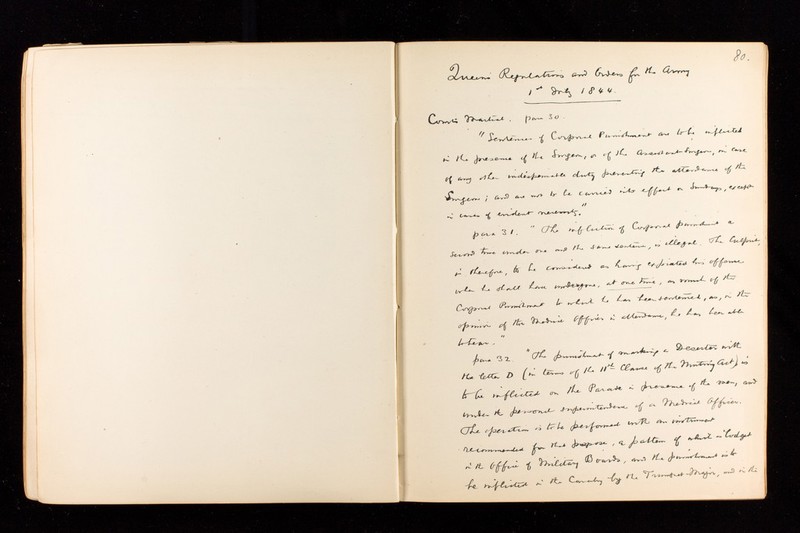 80.
Queen's Regulations and Orders for the Army
1st July 1844.
Courts Martial. para 30.
"Sentences of Corporal Punishment are to be inflicted
in the presence of the Surgeon, or of the Assistant-Surgeon, in case
of any other indispensable duty preventing the attendance of the
Surgeon; and are not to be carried into effect on Sundays, except
in cases of evident necessity."
para 31. "The infliction of Corporal punishment a
second time under one and the same sentence, is illegal. The Culprit,
is therefore, to be considered as having expiated his offence
when he shall have undergone, at one time, as much of the
Corporal Punishment to which he has been sentenced, as, in the
opinion of the Medical Officer in attendance, he has been able
to bear."
para 32. "The punishment of marking a Deserter with
the letter D (in terms of the 11th Clause of the Mutiny Act) is
to be inflicted on the Parade in presence of the men, and
under the personal superintendence of a Medical Officer.
The operation is to be performed with an instrument
recommended for that purpose, a pattern of which is lodged
in the Office of Military Boards, and the punishment is to
be inflicted in the Cavalry by the Trumpet-Major, and in the